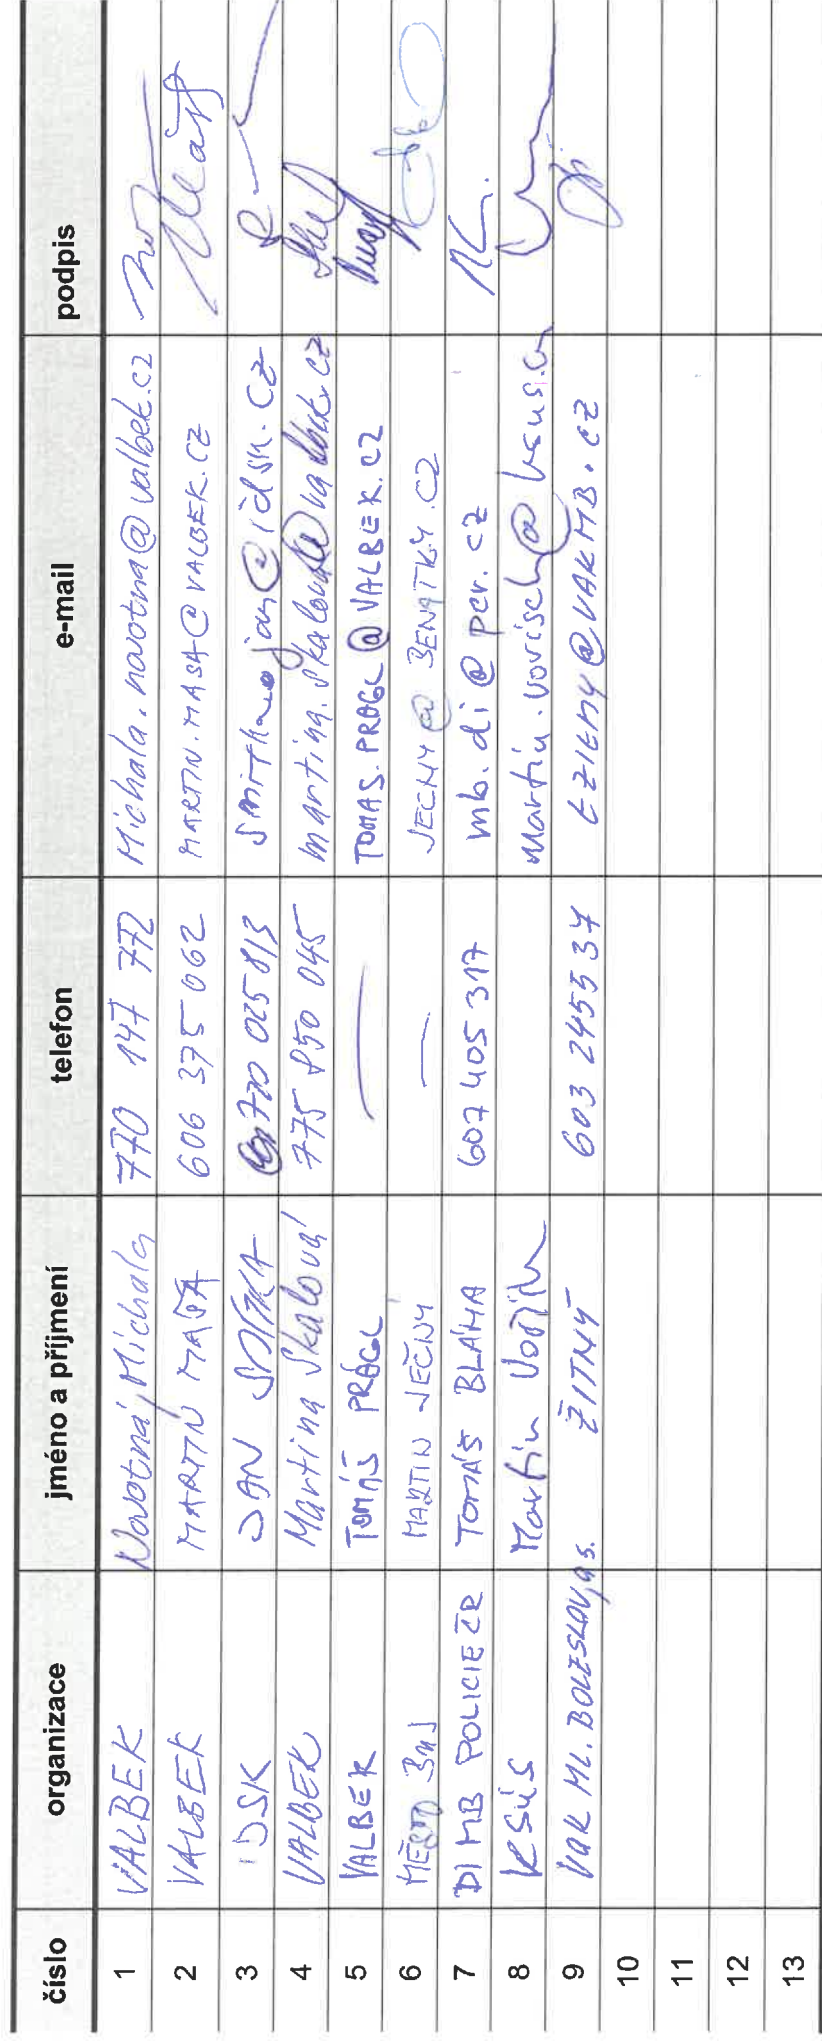 číslo organizace jméno a příjmení telefon e-mail podpis
1 VALBEK Novotná Michala 770 147 772 Michala.novotna@valbek.cz
2 VALBEK MARTIN MAŠA 606 375 062 MARTIN.MASA@VALBEK.CZ
3 IDSK JAN 720 025 813 @idsk.cz
4 VALBEK Martina Skalová 775 850 045 martina.skalova@valbek.cz
5 VALBEK TOMÁŠ PRÁGL — TOMAS.PRAGL@VALBEK.CZ
6 MĚSTO BNJ MARTIN JEČNÝ — JECNY@BENATKY.CZ
7 DI MB POLICIE ČR TOMÁŠ BLÁHA 607 405 317 mb.di@pcr.cz
8 KSÚS Martin
9 VAK ML. BOLESLAV, a.s. ŽITNÝ 603 245537 EZITNY@VAKMB.CZ
10
11
12
13